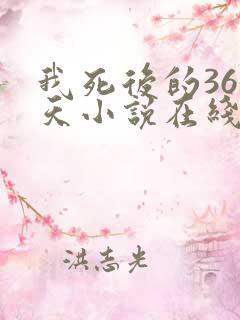 我死後的36
天小説在綫
洪志光